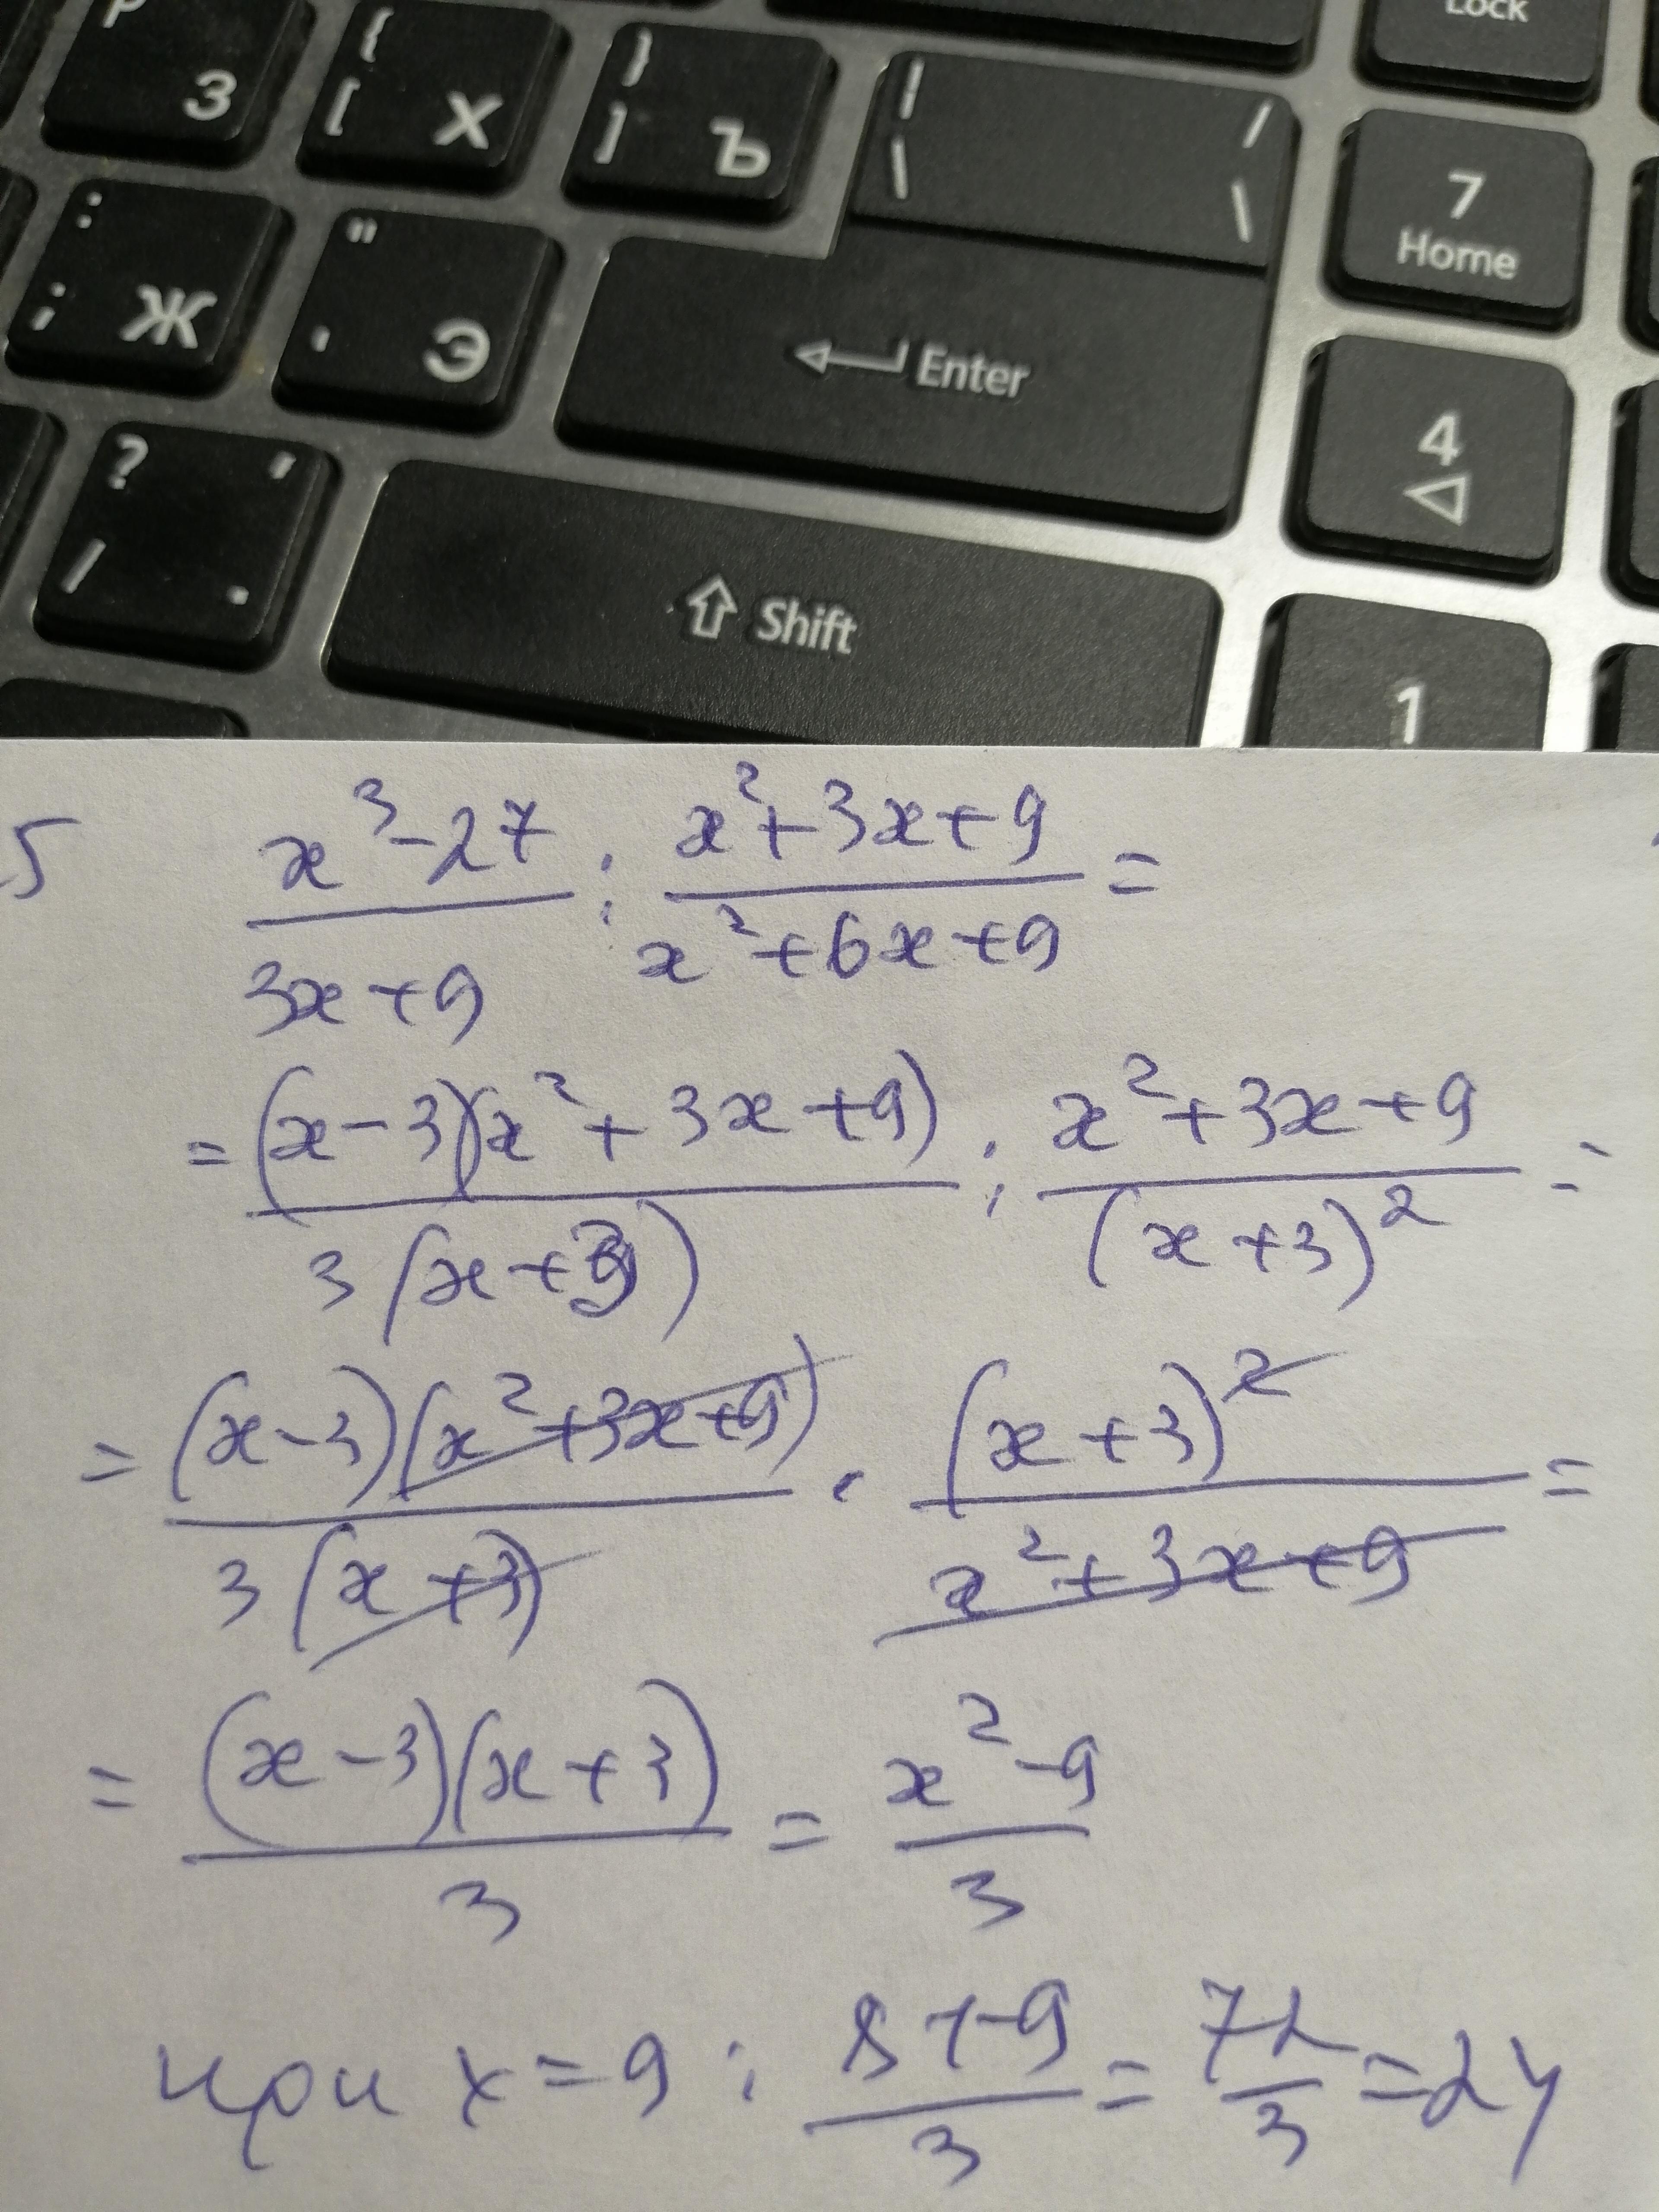 Р З { [ Х } ] Ъ | \ / \ Lock
: ; Ж " ' Э Enter 7 Home
? , / . Shift 4
1
5 (x³-27)/(3x+9) : (x²+3x+9)/(x²+6x+9) =
= ((x-3)(x²+3x+9))/(3(x+3)) : (x²+3x+9)/((x+3)²) =
= ((x-3)(x²+3x+9))/(3(x+3)) · ((x+3)²)/(x²+3x+9) =
= ((x-3)(x+3))/3 = (x²-9)/3
при x=9 : (81-9)/3 = 72/3 = 24